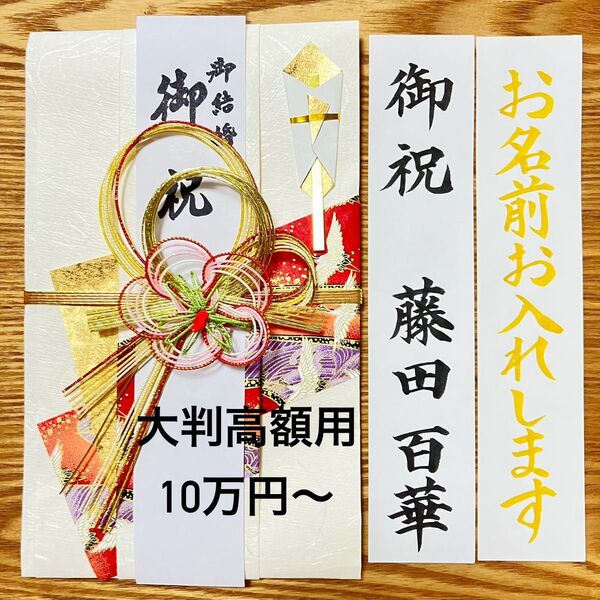 御結婚
御祝
大判高額用
10万円〜
御祝 藤田百華
お名前お入れします